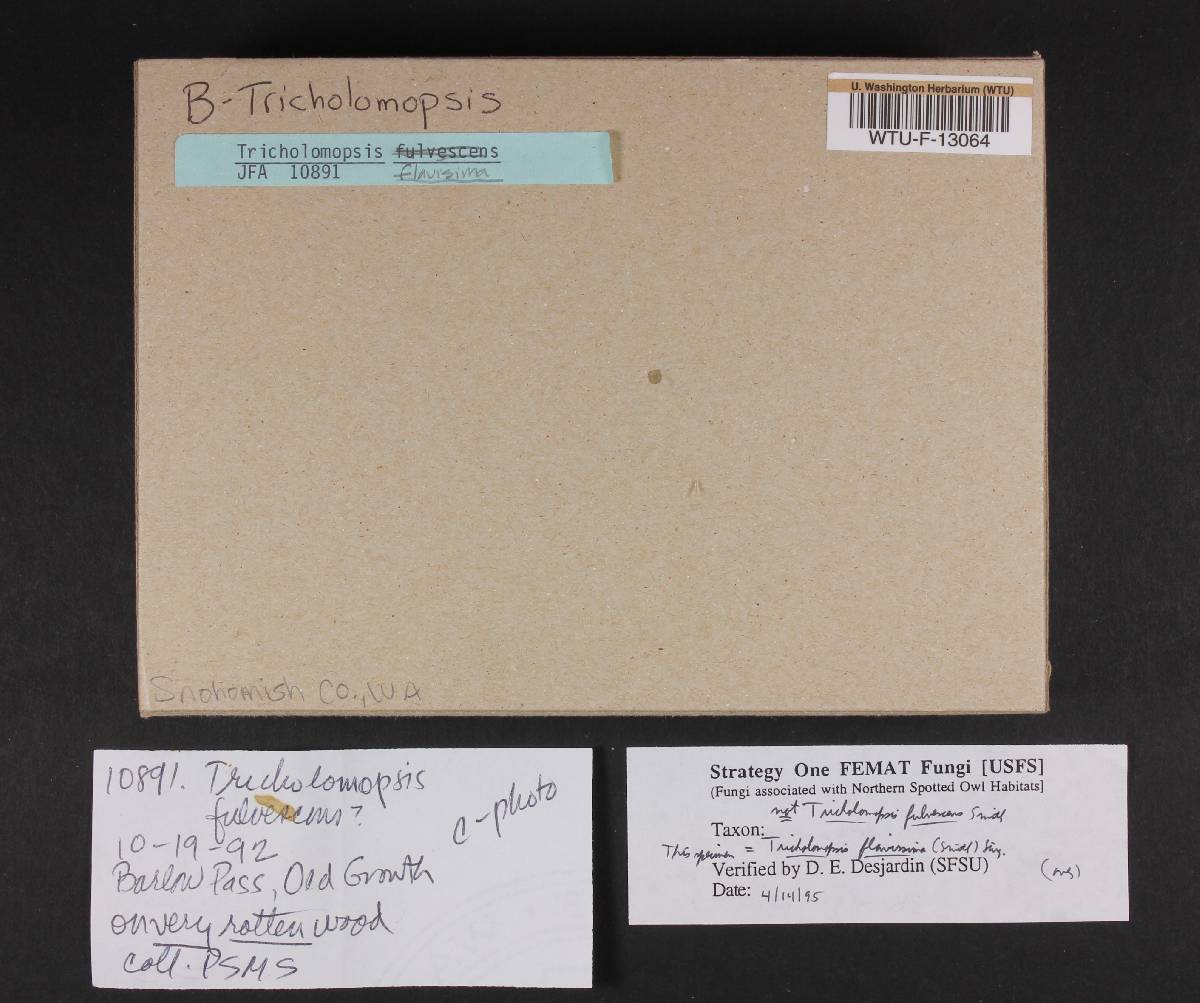 B-Tricholomopsis
U. Washington Herbarium (WTU)
WTU-F-13064
Tricholomopsis fulvescens
JFA 10891 flavisima
Snohomish Co., WA
10891. Tricholomopsis
fulvescens?
c-photo
10-19-92
Barlow Pass, Old Growth
on very rotten wood
coll. PSMS
Strategy One FEMAT Fungi [USFS]
(Fungi associated with Northern Spotted Owl Habitats]
not Tricholomopsis fulvescens Smith
Taxon:
This specimen = Tricholomopsis flavissima (Smith) Sing.
Verified by D. E. Desjardin (SFSU)
Date: 4/14/95